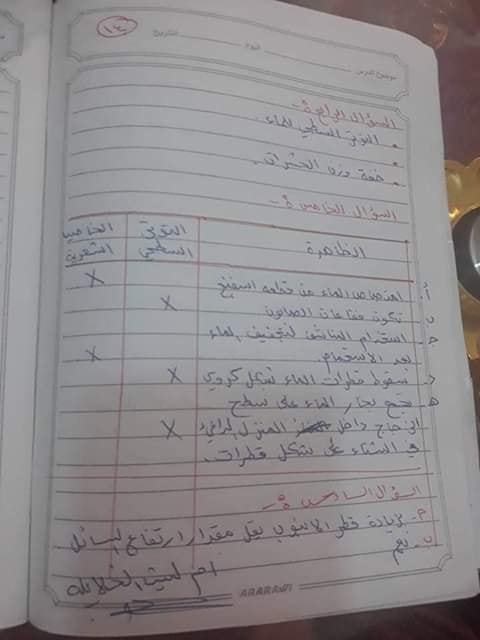 ١٤
موضوع الدرس اليوم التاريخ
السؤال الرابع :-
• التوتر السطحي للماء.
• خفة وزن الحشرات.
السؤال الخامس :-
الظاهرة التوتر السطحي الخاصية الشعرية
أ. امتصاص الماء من قطعه اسفنج X
ب. تكون فقاعات الصابون X
ج. استخدام المناشف لتجفيف الماء
بعد الاستحمام X
د. سقوط قطرات الماء بشكل كروي X
هـ. تجمع بخار الماء على سطح
الزجاج داخل المنزل X
في الشتاء على شكل قطرات.
السؤال السادس :-
م. بزيادة قطر الانبوب يقل مقدار ارتفاع السائل
ب. نعم
ام ليث الخلايله
ARARAWI